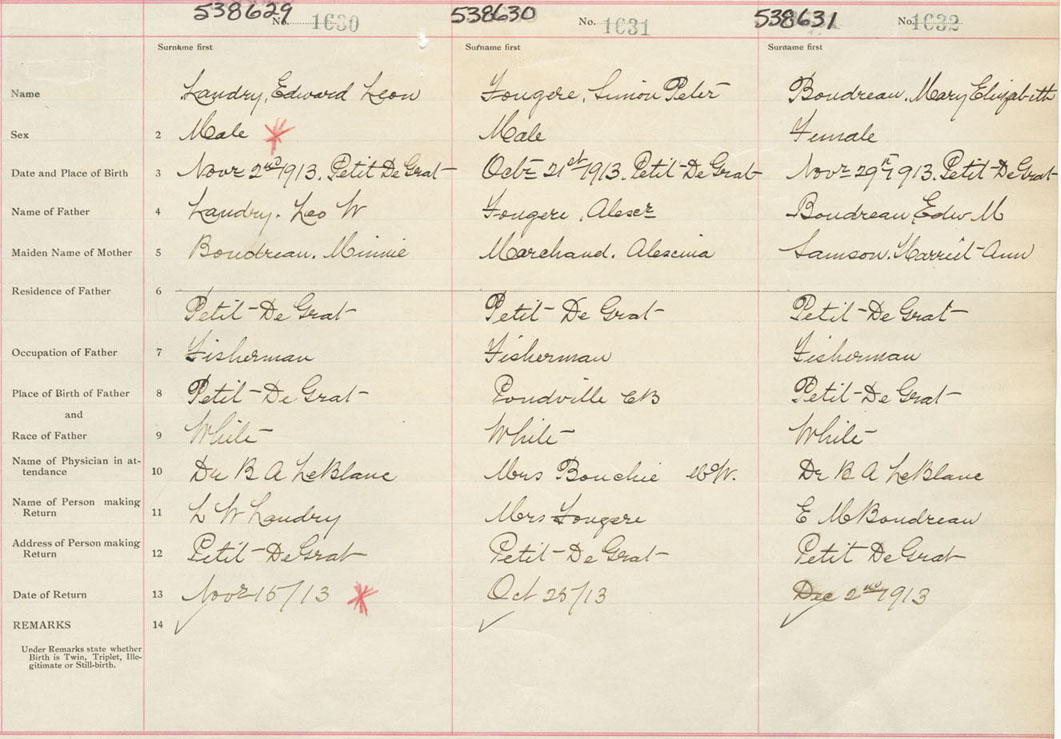 538629 No. 1630 538630 No. 1631 538631 No. 1632
Surname first Surname first Surname first
Name Landry, Edward Leon Fougere, Simon Peter Boudreau, Mary Elizabeth
Sex 2 Male Male Female
Date and Place of Birth 3 Novr 2nd 1913. Petit De Grat Octr 21st 1913. Petit-De Grat Novr 29th 1913. Petit De Grat
Name of Father 4 Landry. Leo W Fougere, Boudreau Edw M
Maiden Name of Mother 5 Boudreau. Minnie Marchand. Alescina Samson. Harriet-Ann
Residence of Father 6
Petit-De Grat Petit-De Grat Petit-De Grat
Occupation of Father 7 Fisherman Fisherman Fisherman
Place of Birth of Father 8 Petit-De Grat Pondville CB Petit-De Grat
and
Race of Father 9 White White White
Name of Physician in at-
tendance 10 Dr B A LeBlanc Mrs Bouchie M.W. Dr B A LeBlanc
Name of Person making
Return 11 L W Landry Mrs Fougere E M Boudreau
Address of Person making
Return 12 Petit-De Grat Petit-De Grat Petit De Grat
Date of Return 13 Novr 15/13 Oct 25/13 Dec 2nd 1913
REMARKS 14
Under Remarks state whether
Birth is Twin, Triplet, Ille-
gitimate or Still-birth.